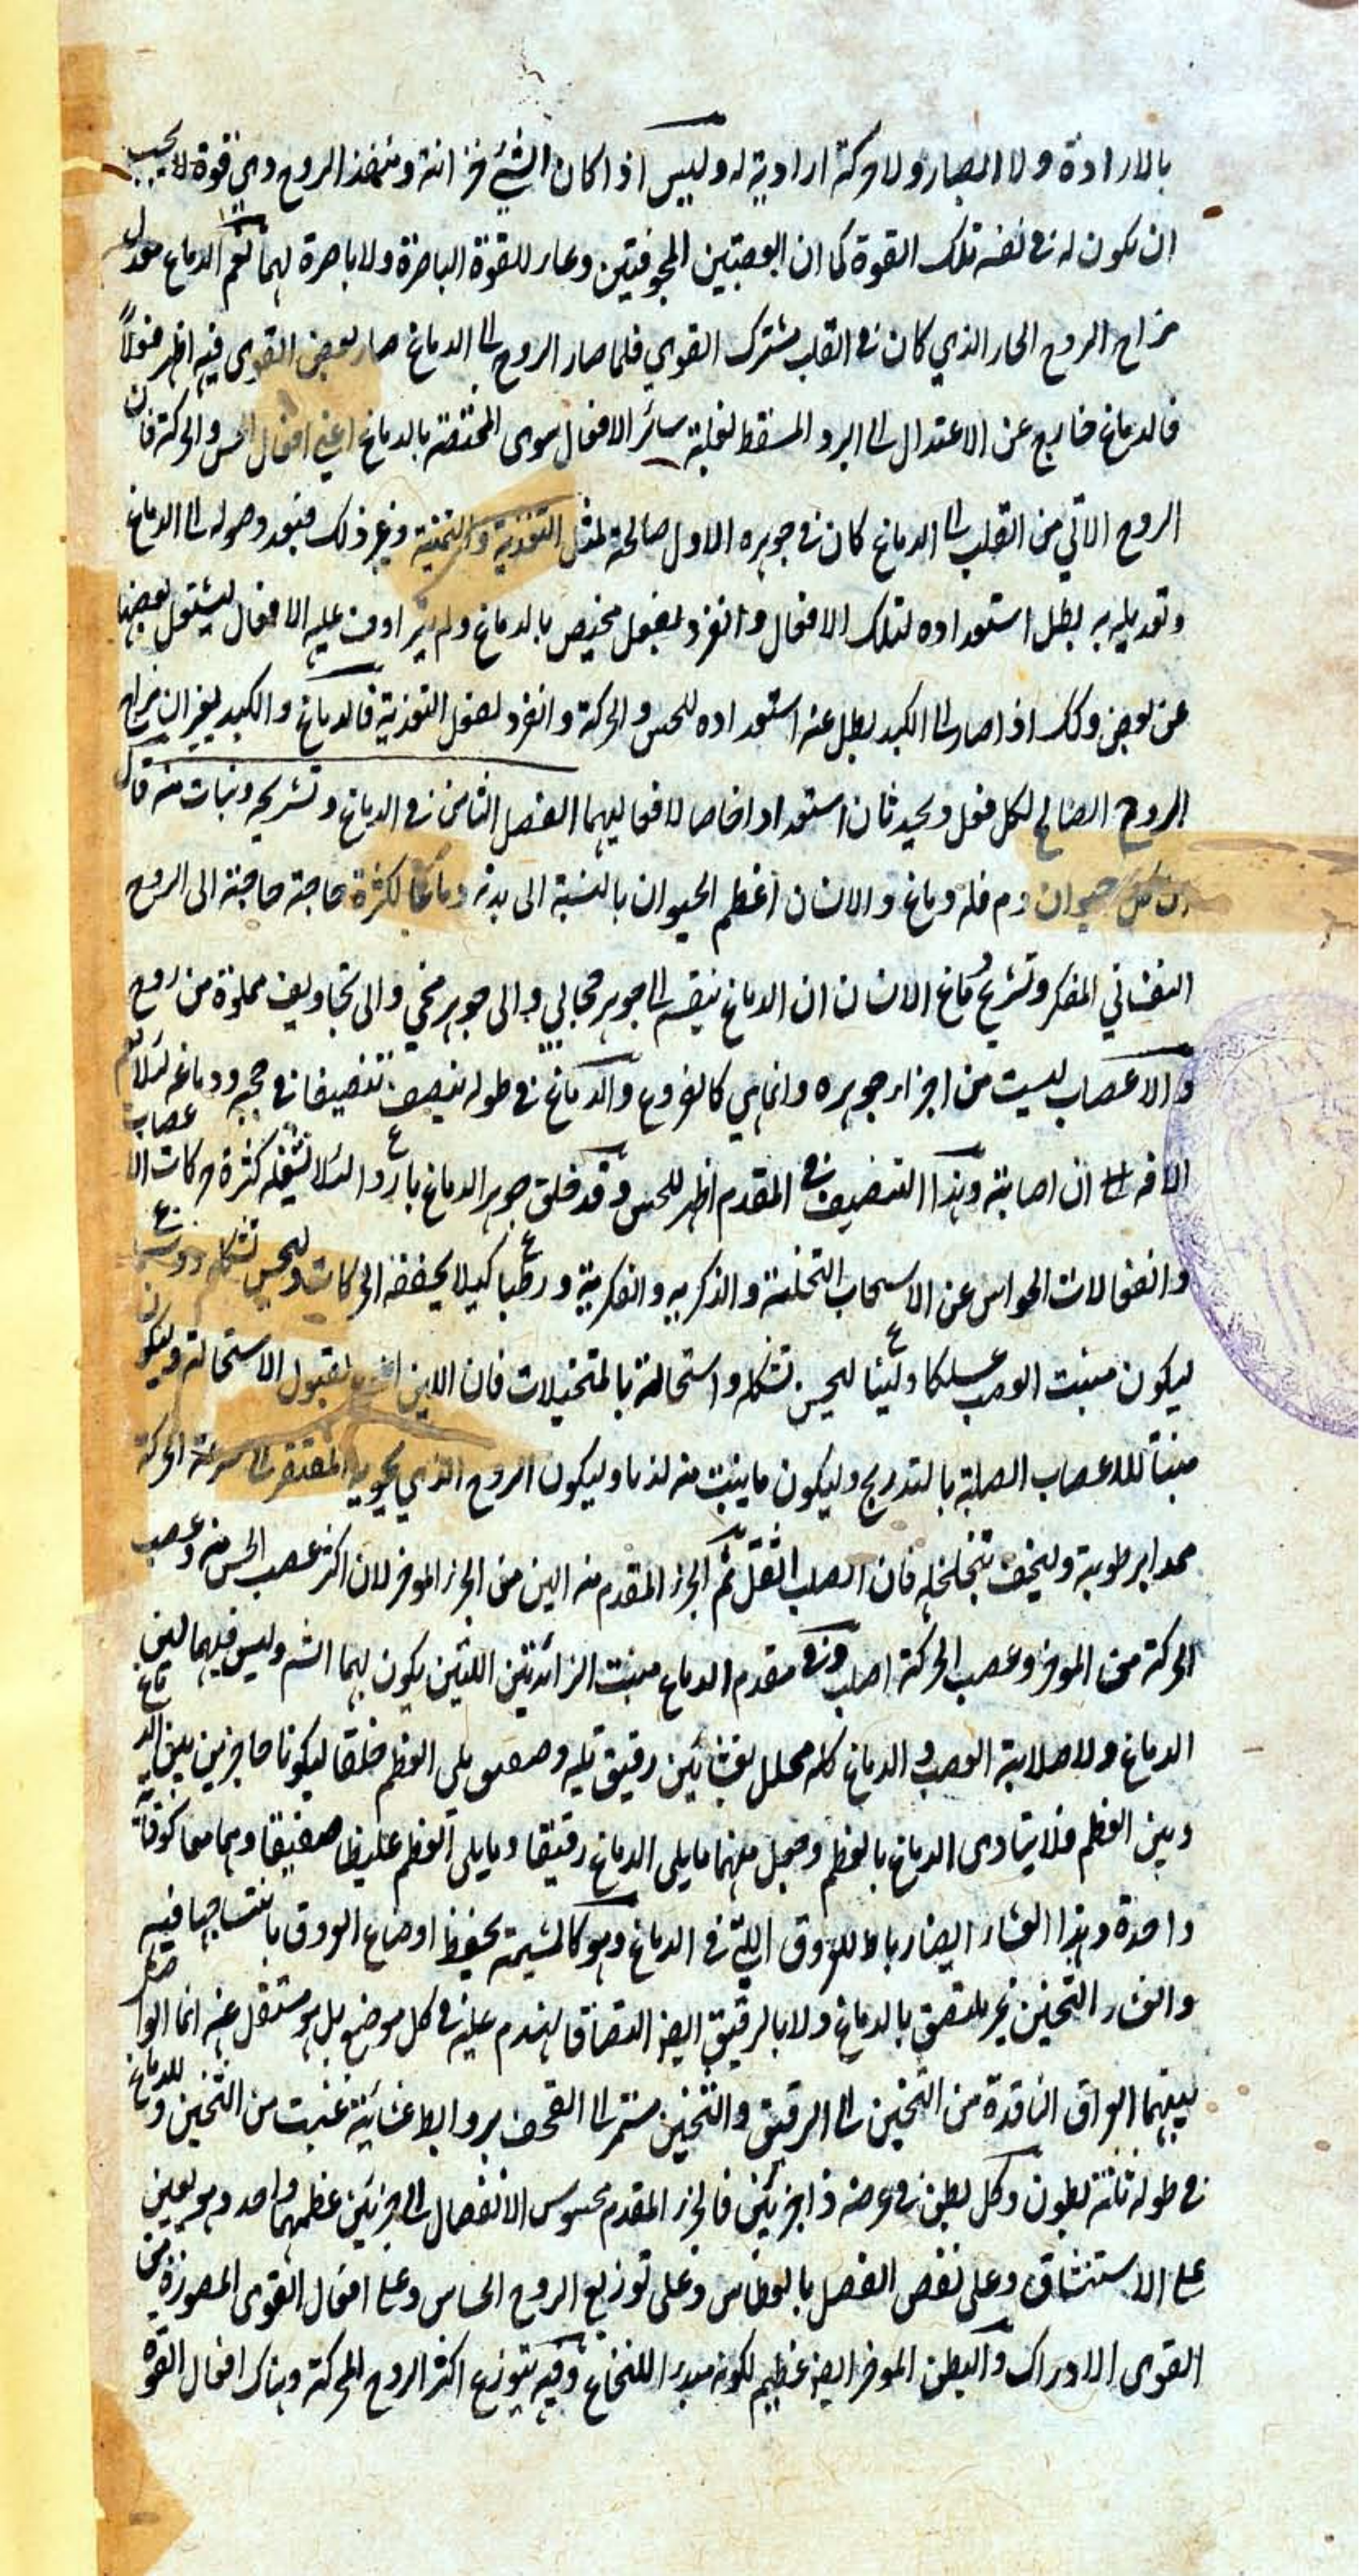 بالارادة ولا ابصار ولا حركة ارادية له وليس اذا كان الشئ خزانة ومنفذ الروح ذي قوة لا يجب
ان يكون له في نفسه تلك القوة كما ان العصبتين المجوفتين وعاء للقوة الباصرة ولا باصرة لهما نعم الدماغ معدل
مزاج الروح الحار الذي كان في القلب مشترك القوي فلما صار الروح الى الدماغ صار بعض القوى فيه اظهر فعلاً
فالدماغ خارج عن الاعتدال الى البرد المسقط لغلبة سائر الافعال سوى المختصة بالدماغ اعني افعال الحس والحركة فان
الروح الاتي من القلب الى الدماغ كان في جوهره الاول صالحة لمثل التغذية والتنمية وغير ذلك فبعد وصوله الى الدماغ
وتعديله به بطل استعداده لتلك الافعال وانفرد بفعل مختص بالدماغ ولم يترادف عليه الافعال ليشتغل ببعضها
عن بعض وكك اذا صار الى الكبد بطل عنه استعداده للحس والحركة وانفرد لفعل التغذية فالدماغ والكبد يغيران مزاج
الروح الصالح لكل فعل ويحدثان استعدادا خاصا لافعاليهما الفصل الثامن في الدماغ وتشريحه ونبات منه قال
ان كل حيوان دم فله دماغ والانسان اعظم الحيوان بالنسبة الى بدنه دماغا لكثرة حاجته الى الروح
النفساني المفكر وتشريح دماغ الانسان ان الدماغ ينقسم الى جوهر حجابي والى جوهر مخي والى تجاويف مملوة من روح
والاعصاب ليست من اجزاء جوهره وانما هي كالفروع والدماغ في طوله ينصف تنصيفا في حجبه ودماغه لئلا تعم
الافة ان اصابته وهذا التنصيف في المقدم اظهر للحس وقد خلق جوهر الدماغ باردا لئلا تشغله كثرة حركات الاعصاب
وانفعالات الحواس عن الاسحاب التخلية والذكرية والفكرية ورطبا كيلا يجففه الحركات وليحسن تشكله
ليكون منبت العصب علكا ولينا ليحسن تشكله واستحالته بالمتخيلات فان اللين لقبول الاستحالة وليكون
منبتا للاعصاب الصلبة بالتدريج وليكون ما ينبت منه لدنا وليكون الروح الذي يحويه المفتقر الى سرعة الحركة
ممدا برطوبة وليخف بتخلخله فان الصلب اثقل ثم الجزء المقدم منه الين من الجزء الموخر لان اكثر عصب الحس منه وعصب
الحركة من الموخر وعصب الحركة اصلب وفي مقدم الدماغ منبت الزائدتين اللتين يكون بهما الشم وليس فيهما لين
الدماغ ولا صلابة العصب والدماغ كله مجلل بغشائين رقيق يليه وصفيق يلي العظم خلقا ليكونا حاجزين بين الدماغ
وبين العظم فلا يتادى الدماغ بالعظم وجعل منهما ما يلي الدماغ رقيقا وما يلي العظم غليظا صفيقا وهما معا كوقاية
واحدة وهذا الغشاء ايضا رباط للعروق التي في الدماغ وهو كالمشيمة يحفظ اوضاع العروق بانتساجها فيه
والغشاء الثخين غير ملتصق بالدماغ ولا بالرقيق ايضا التصاق يهندم عليه في كل موضع بل هو مستقل عنه انما الواصل
بينهما العراق النافذة من الثخين الى الرقيق والثخين مستمر الى القحف بروابط غشائية تنبت من الثخين وللدماغ
في طوله ثلثة بطون وكل بطن في عرضه ذا جزئين فالجزء المقدم محسوس الانفصال الى جزئين عظيمهما واحد وهو يعين
على الاستنشاق وعلى نفض الفضل بالعطاس وعلى توزيع الروح الحساس وعلى افعال القوى المصورة من
القوى الادراك والبطن الموخر ايضا عظيم لكونه مبدء النخاع وفيه يتوزع اكثر الروح المحركة وهناك افعال القوة